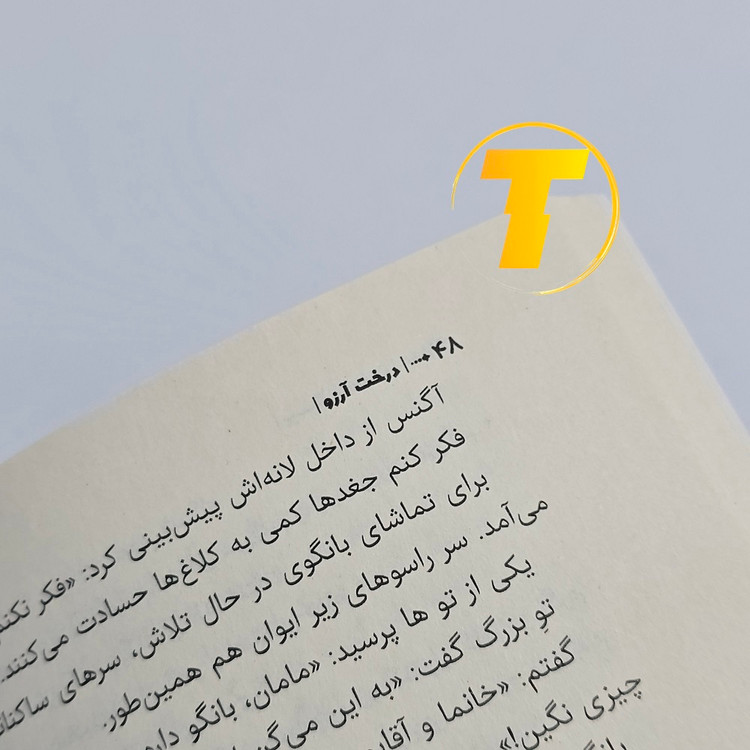 T
۴۸ ... | درخت آرزو |
آگنس از داخل لانه‌اش پیش‌بینی کرد: «فکر
فکر کنم جغدها کمی به کلاغ‌ها حسادت می‌کنند.
برای تماشای بانگوی در حال تلاش، سرهای
می‌آمد. سر راسوهای زیر ایوان هم همین‌طور.
یکی از تو ها پرسید: «مامان، بانگو
توِ بزرگ گفت: «به این
گفتم: «خانما و
چیزی نگین!»